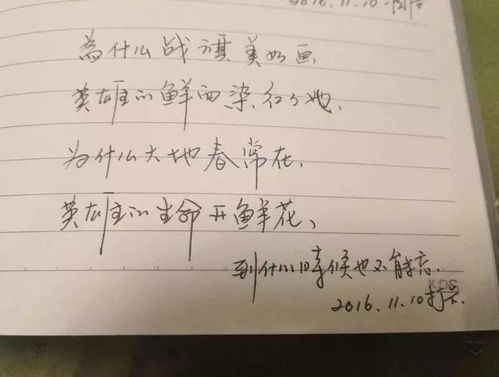 2016.11.10
為什么战旗美如画
英雄的鲜血染红了她、
为什么大地春常在、
英雄的生命开鲜花、
到什么時候也不能忘.
2016.11.10